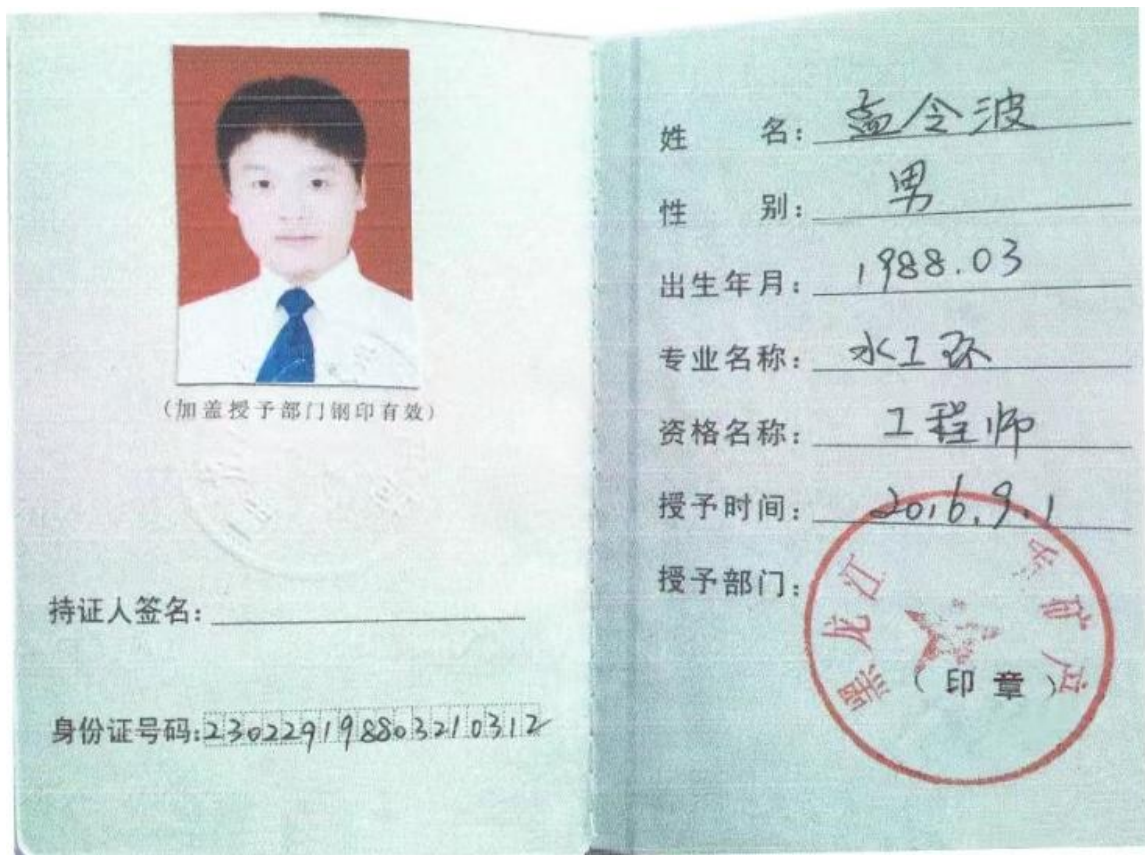 (加盖授予部门钢印有效)
持证人签名:
身份证号码:230229198803210312
姓 名:孟令波
性 别:男
出生年月:1988.03
专业名称:水工环
资格名称:工程师
授予时间:2016.9.1
授予部门:
黑龙江 矿产
(印章)